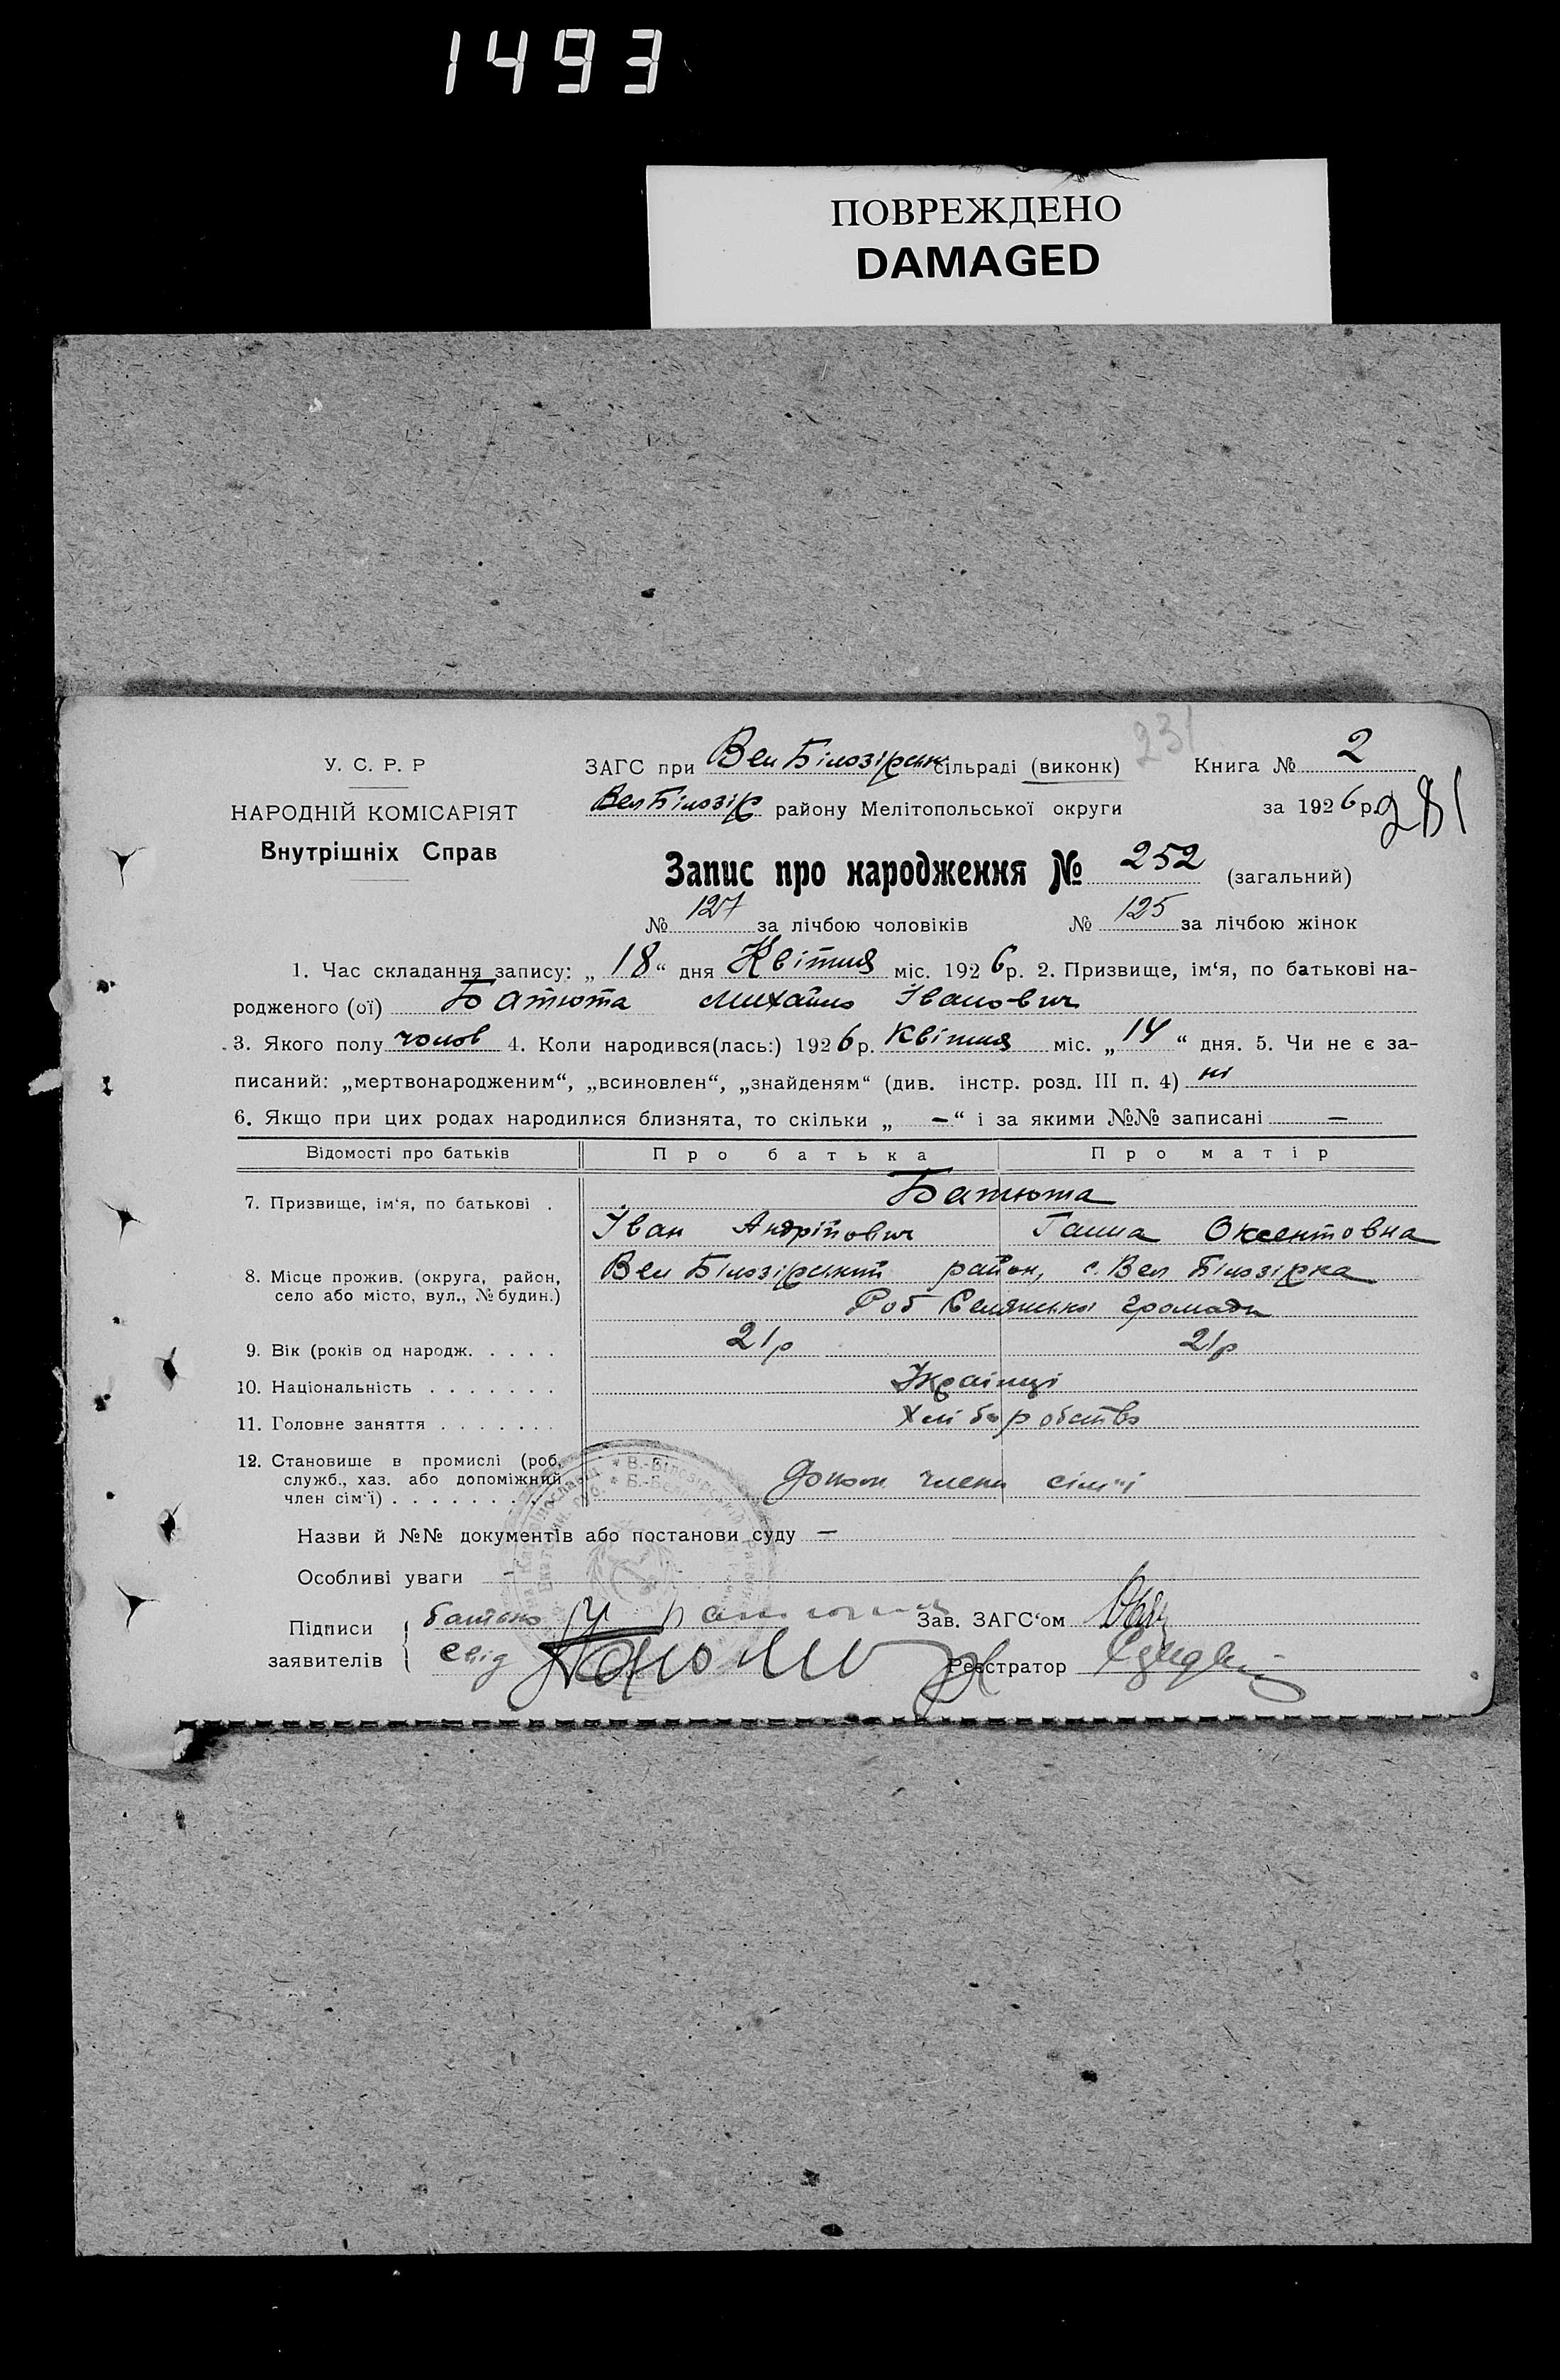 1493
ПОВРЕЖДЕНО
DAMAGED
231
У. С. Р. Р
НАРОДНІЙ КОМІСАРІЯТ
Внутрішніх Справ
ЗАГС при Вел Білозірськ сільраді (виконк) Книга № 2
Вел Білозір району Мелітопольської округи за 1926 р.
281
Запис про народження № 252 (загальний)
№ 127 за лічбою чоловіків № 125 за лічбою жінок
1. Час складання запису: „ 18 “ дня Квітня міс. 1926 р. 2. Призвище, ім‘я, по батькові на-
родженого (ої) Батюта Михайло Іванович
3. Якого полу чолов 4. Коли народився(лась:) 1926 р. Квітня міс. „ 14 “ дня. 5. Чи не є за-
писаний: „мертвонародженим“, „всиновлен“, „знайденям“ (див. інстр. розд. III п. 4) ні
6. Якщо при цих родах народилися близнята, то скільки „ — “ і за якими №№ записані —
Відомості про батьків Про батька Про матір
7. Призвище, ім‘я, по батькові . Батюта
Іван Андрійович Ганна Оксентовна
8. Місце прожив. (округа, район, село або місто, вул., № будин.) Вел Білозірський район, с. Вел Білозірка
Роб Селянської громади
9. Вік (років од народж. . . . . 21 р 21 р
10. Національність . . . . . . . Українці
11. Головне заняття . . . . . . . Хліборобство
12. Становище в промислі (роб.
служб., хаз. або допоміжний
член сім‘ї) . . . . . . . . . Допом члени сім"ї
Назви й №№ документів або постанови суду —
Особливі уваги —
Підписи заявителів
батько
Зав. ЗАГС‘ом
свід
Реєстратор